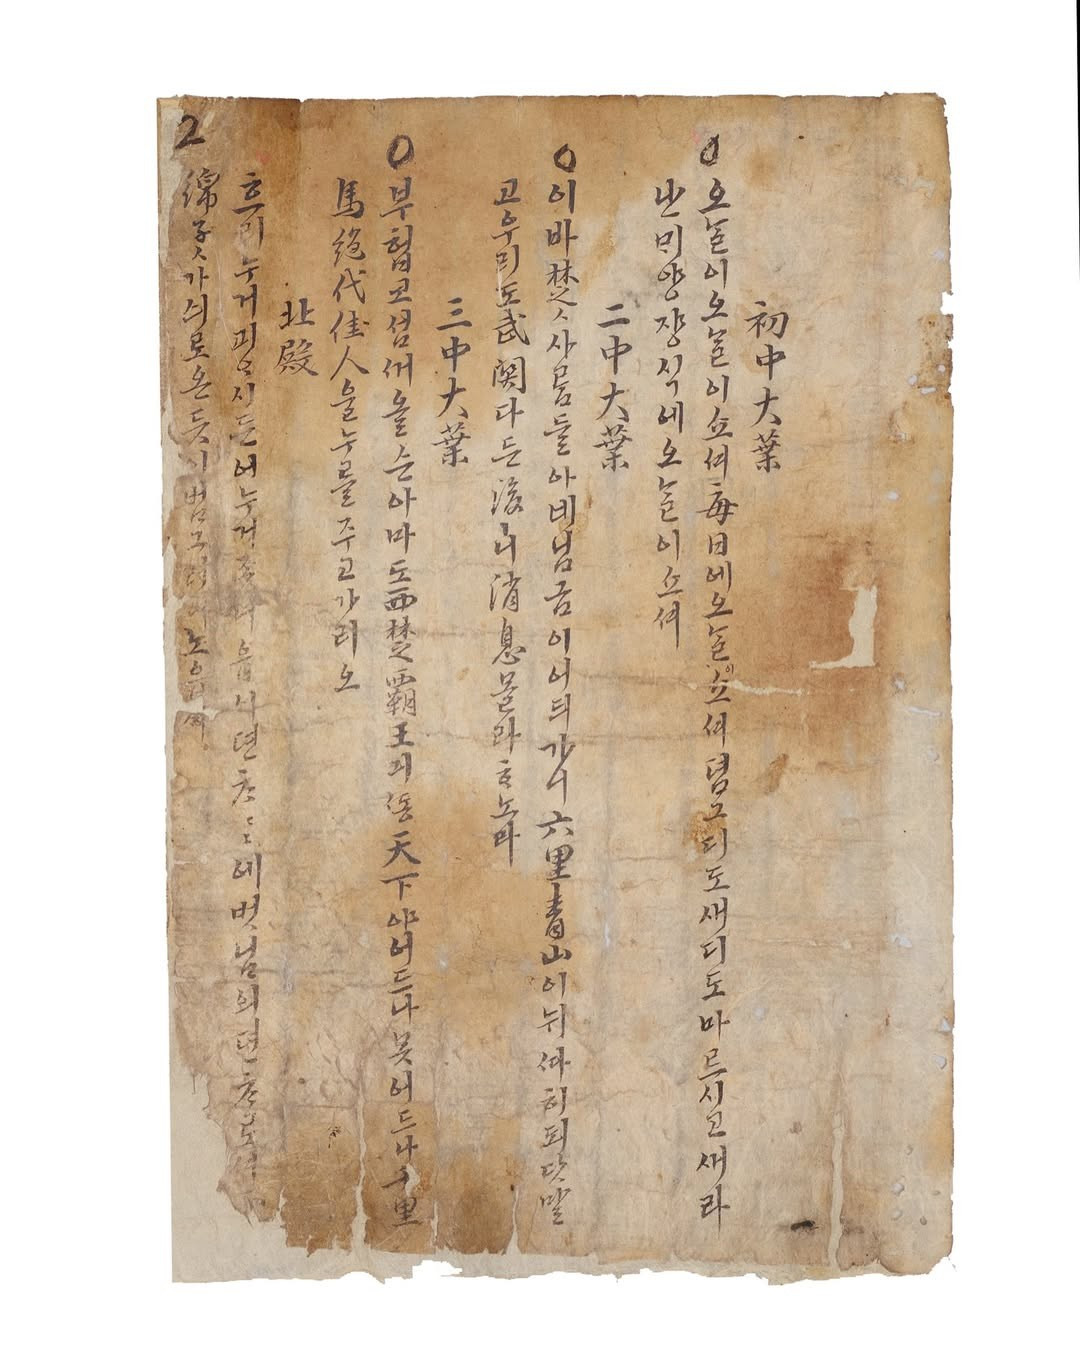 初中大葉
○ 오ᄂᆞᆯ이오ᄂᆞᆯ이쇼셔每日에오ᄂᆞᆯ이쇼셔뎜그디도새디도마르시고새라
난ᄆᆡ양쟝식에오ᄂᆞᆯ이쇼셔
二中大葉
○ 이바楚ㅅ사ᄅᆞᆷ들아네님금이어듸가니六里靑山이뉘ᄯᅡ히되닷말
고우리도武關다든後ㅣ니消息몰라ᄒᆞ노라
三中大葉
○ 부협고섬ᄭᅥ올슨아마도西楚覇王긔ᄯᅩᆼ天下야어드나못어드나千里
馬絶代佳人을누를주고가리오
北殿
흐리누거괴ᄋᆞ시든어누거 시뎐ᄎᆞ ᄎᆞ에벗님의뎐ᄎᆞ로셔
2
綿子ㅅ가싀로온듯시범그려노